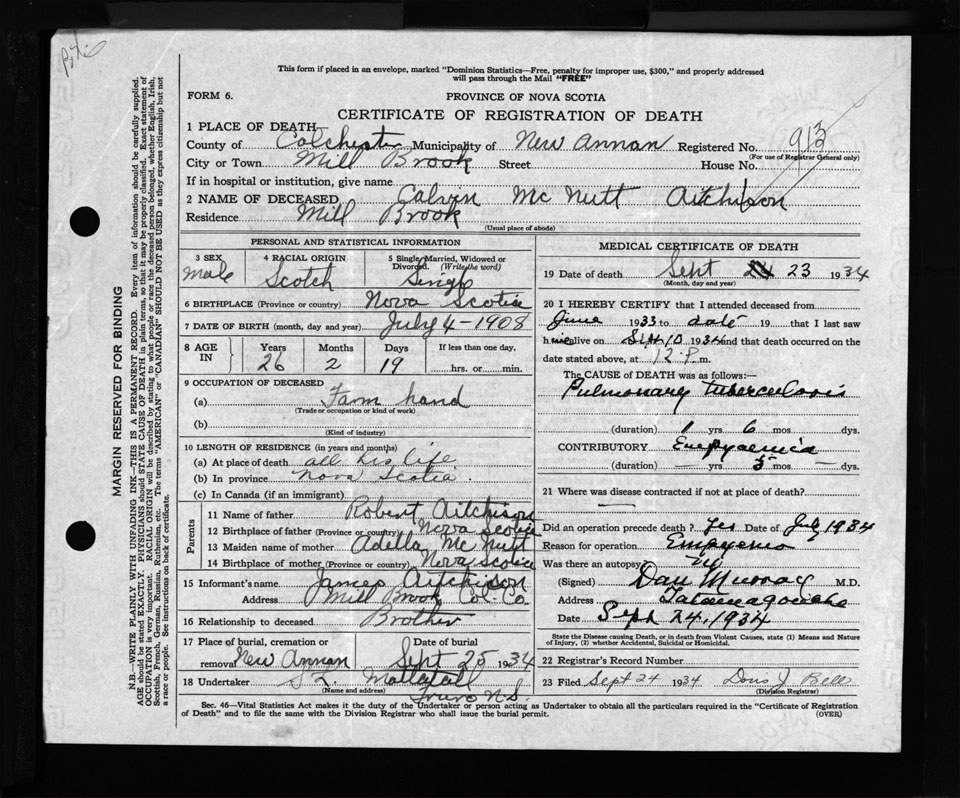 This form if placed in an envelope, marked "Dominion Statistics—Free, penalty for improper use, $300," and properly addressed
will pass through the Mail "FREE"
FORM 6.
PROVINCE OF NOVA SCOTIA
CERTIFICATE OF REGISTRATION OF DEATH
1 PLACE OF DEATH
County of Colchester Municipality of New Annan Registered No. 913
(For use of Registrar General only)
City or Town Mill Brook Street House No.
If in hospital or institution, give name
2 NAME OF DECEASED Calvin McNutt Aitchison
Residence Mill Brook
(Usual place of abode)
MARGIN RESERVED FOR BINDING
N.B.—WRITE PLAINLY WITH UNFADING INK—THIS IS A PERMANENT RECORD. Every item of information should be carefully supplied.
AGE should be stated EXACTLY. PHYSICIANS should STATE CAUSE OF DEATH in plain terms, so that it may be properly classified. Exact statement of
OCCUPATION is very important. RACIAL ORIGIN will be described by stating to what people or race the deceased person belonged, whether English, Irish,
Scottish, French, German, Russian, Ruthenian, etc. The terms "AMERICAN" or "CANADIAN" SHOULD NOT BE USED as they express citizenship but not
a race or people. See instructions on back of certificate.
PERSONAL AND STATISTICAL INFORMATION
3 SEX
Male
4 RACIAL ORIGIN
Scotch
5 Single, Married, Widowed or
Divorced. (Write the word)
Single
6 BIRTHPLACE (Province or country) Nova Scotia
7 DATE OF BIRTH (month, day and year) July 4 - 1908
8 AGE IN
Years Months Days If less than one day,
26 2 19 hrs. or min.
9 OCCUPATION OF DECEASED
(a) Farm hand
(Trade or occupation or kind of work)
(b)
(Kind of industry)
10 LENGTH OF RESIDENCE (in years and months)
(a) At place of death all his life
(b) In province Nova Scotia
(c) In Canada (if an immigrant)
Parents
11 Name of father Robert Aitchison
12 Birthplace of father (Province or country) Nova Scotia
13 Maiden name of mother Adella McNutt
14 Birthplace of mother (Province or country) Nova Scotia
15 Informant's name James Aitchison
Address Mill Brook Col. Co.
16 Relationship to deceased Brother
17 Place of burial, cremation or
removal New Annan
Date of burial
Sept 25 1934
18 Undertaker
(Name and address)
Truro N.S.
MEDICAL CERTIFICATE OF DEATH
19 Date of death Sept 23 1934
(Month, day and year)
20 I HEREBY CERTIFY that I attended deceased from
June 1933 to date 19 that I last saw
h im alive on Sept 10 1934 and that death occurred on the
date stated above, at 12 P.m.
The CAUSE OF DEATH was as follows:—
Pulmonary tuberculosis
(duration) 1 yrs 6 mos dys.
CONTRIBUTORY Empyemia
(duration) — yrs 3 mos — dys.
21 Where was disease contracted if not at place of death?
Did an operation precede death? yes Date of July 1934
Reason for operation Empyema
Was there an autopsy? no
(Signed) Dan Murray M.D.
Address Tatamagouche
Date Sept 24, 1934
State the Disease causing Death, or in death from Violent Causes, state (1) Means and Nature
of Injury, (2) whether Accidental, Suicidal or Homicidal.
22 Registrar's Record Number
23 Filed Sept 24 1934 Doris J Bell
(Division Registrar)
Sec. 46—Vital Statistics Act makes it the duty of the Undertaker or person acting as Undertaker to obtain all the particulars required in the "Certificate of Registration
of Death" and to file the same with the Division Registrar who shall issue the burial permit.
(OVER)